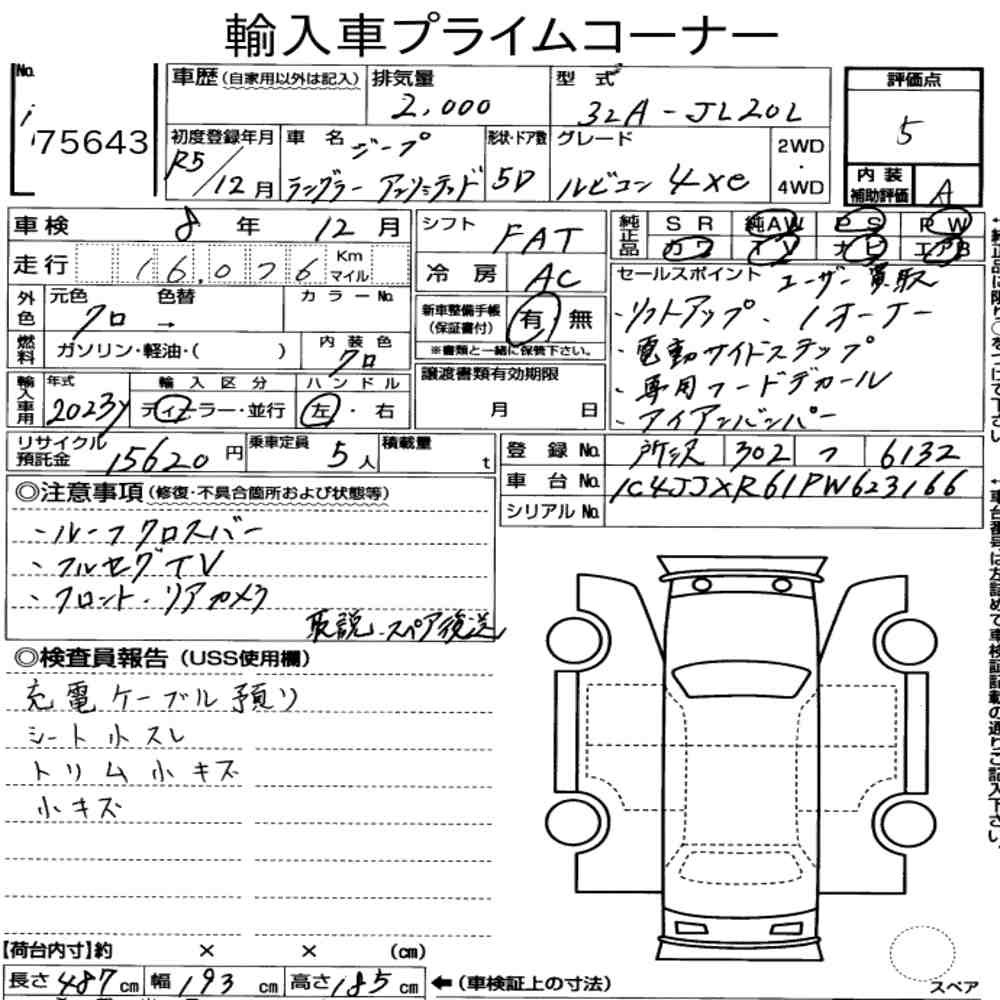 輸入車プライムコーナー
No. i 175643
車歴 (自家用以外は記入)
排気量 2,000
型式 3LA-JL20L
評価点 5
内装補助評価 A
初度登録年月 R5/12月
車名 ジープ ラングラー アンリミテッド
形状・ドア数 5D
グレード ルビコン 4xe
2WD・4WD
車検 8年 12月
走行 16,076 Km マイル
シフト FAT
冷房 AC
純正品 SR 純AW PS PW
カワ TV ナビ エアB
外色 元色 クロ → 色替 カラーNo.
燃料 ガソリン・軽油・( )
内装色 クロ
新車整備手帳(保証書付) 有 無
※書類と一緒に保管下さい。
セールスポイント ユーザー買取
・リフトアップ . 1オーナー
・電動サイドステップ
・専用フードデカール
・アイアンバンパー
輸入車用 年式 2023y
輸入区分 ディーラー・並行
ハンドル 左・右
譲渡書類有効期限 月 日
リサイクル預託金 15620円
乗車定員 5人
積載量 t
登録No. 所沢 302 つ 6132
車台No. 1C4JJXR61PW623166
シリアルNo.
◎注意事項 (修復・不具合箇所および状態等)
、ルーフクロスバー
、フルセグTV
、フロント・リアカメラ
取説、スペア後送
◎検査員報告 (USS使用欄)
充電ケーブル預り
シート小スレ
トリム小キズ
小キズ
【荷台内寸】約 × × (cm)
長さ 487cm 幅 193cm 高さ 185cm ←(車検証上の寸法)
スペア